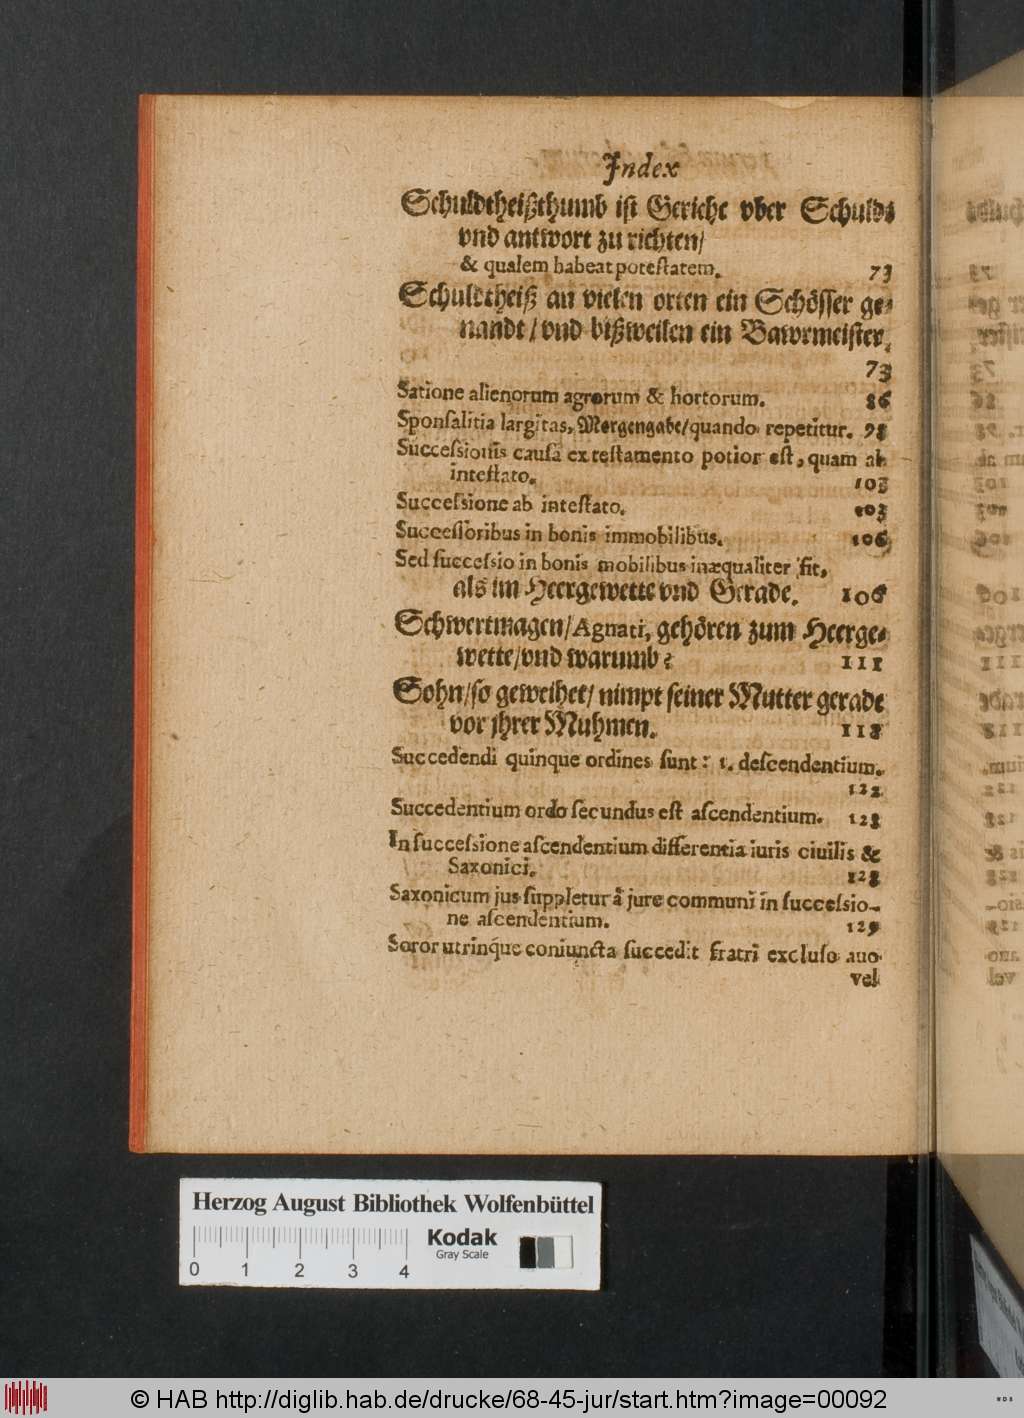 Index
Schuldtheißthumb ist Gericht vber Schuld⸗
vnd antwort zu richten/
& qualem habeat potestatem. 73
Schuldtheiß an vielen orten ein Schösser ge⸗
nandt / vnd bißweilen ein Bawrmeister.
73
Satione alienorum agrorum & hortorum. 86
Sponsalitia largitas, Morgengabe/quando repetitur. 98
Successionis causa ex testamento potior est, quam ab
intestato. 103
Successione ab intestato. 103
Successoribus in bonis immobilibus. 106
Sed successio in bonis mobilibus inæqualiter fit,
als im Heergewette vnd Gerade. 106
Schwertmagen/Agnati, gehören zum Heerge⸗
wette/vnd warumb? 111
Sohn/so geweihet/ nimpt seiner Mutter gerade
vor jhrer Muhmen. 118
Succedendi quinque ordines sunt: 1. descendentium.
122
Succedentium ordo secundus est ascendentium. 128
In successione ascendentium differentia iuris ciuilis &
Saxonici. 128
Saxonicum jus suppletur â jure communi in successio-
ne ascendentium. 129
Soror utrinque coniuncta succedit fratri excluso auo
vel
Herzog August Bibliothek Wolfenbüttel
Kodak
Gray Scale
0 1 2 3 4
© HAB http://diglib.hab.de/drucke/68-45-jur/start.htm?image=00092